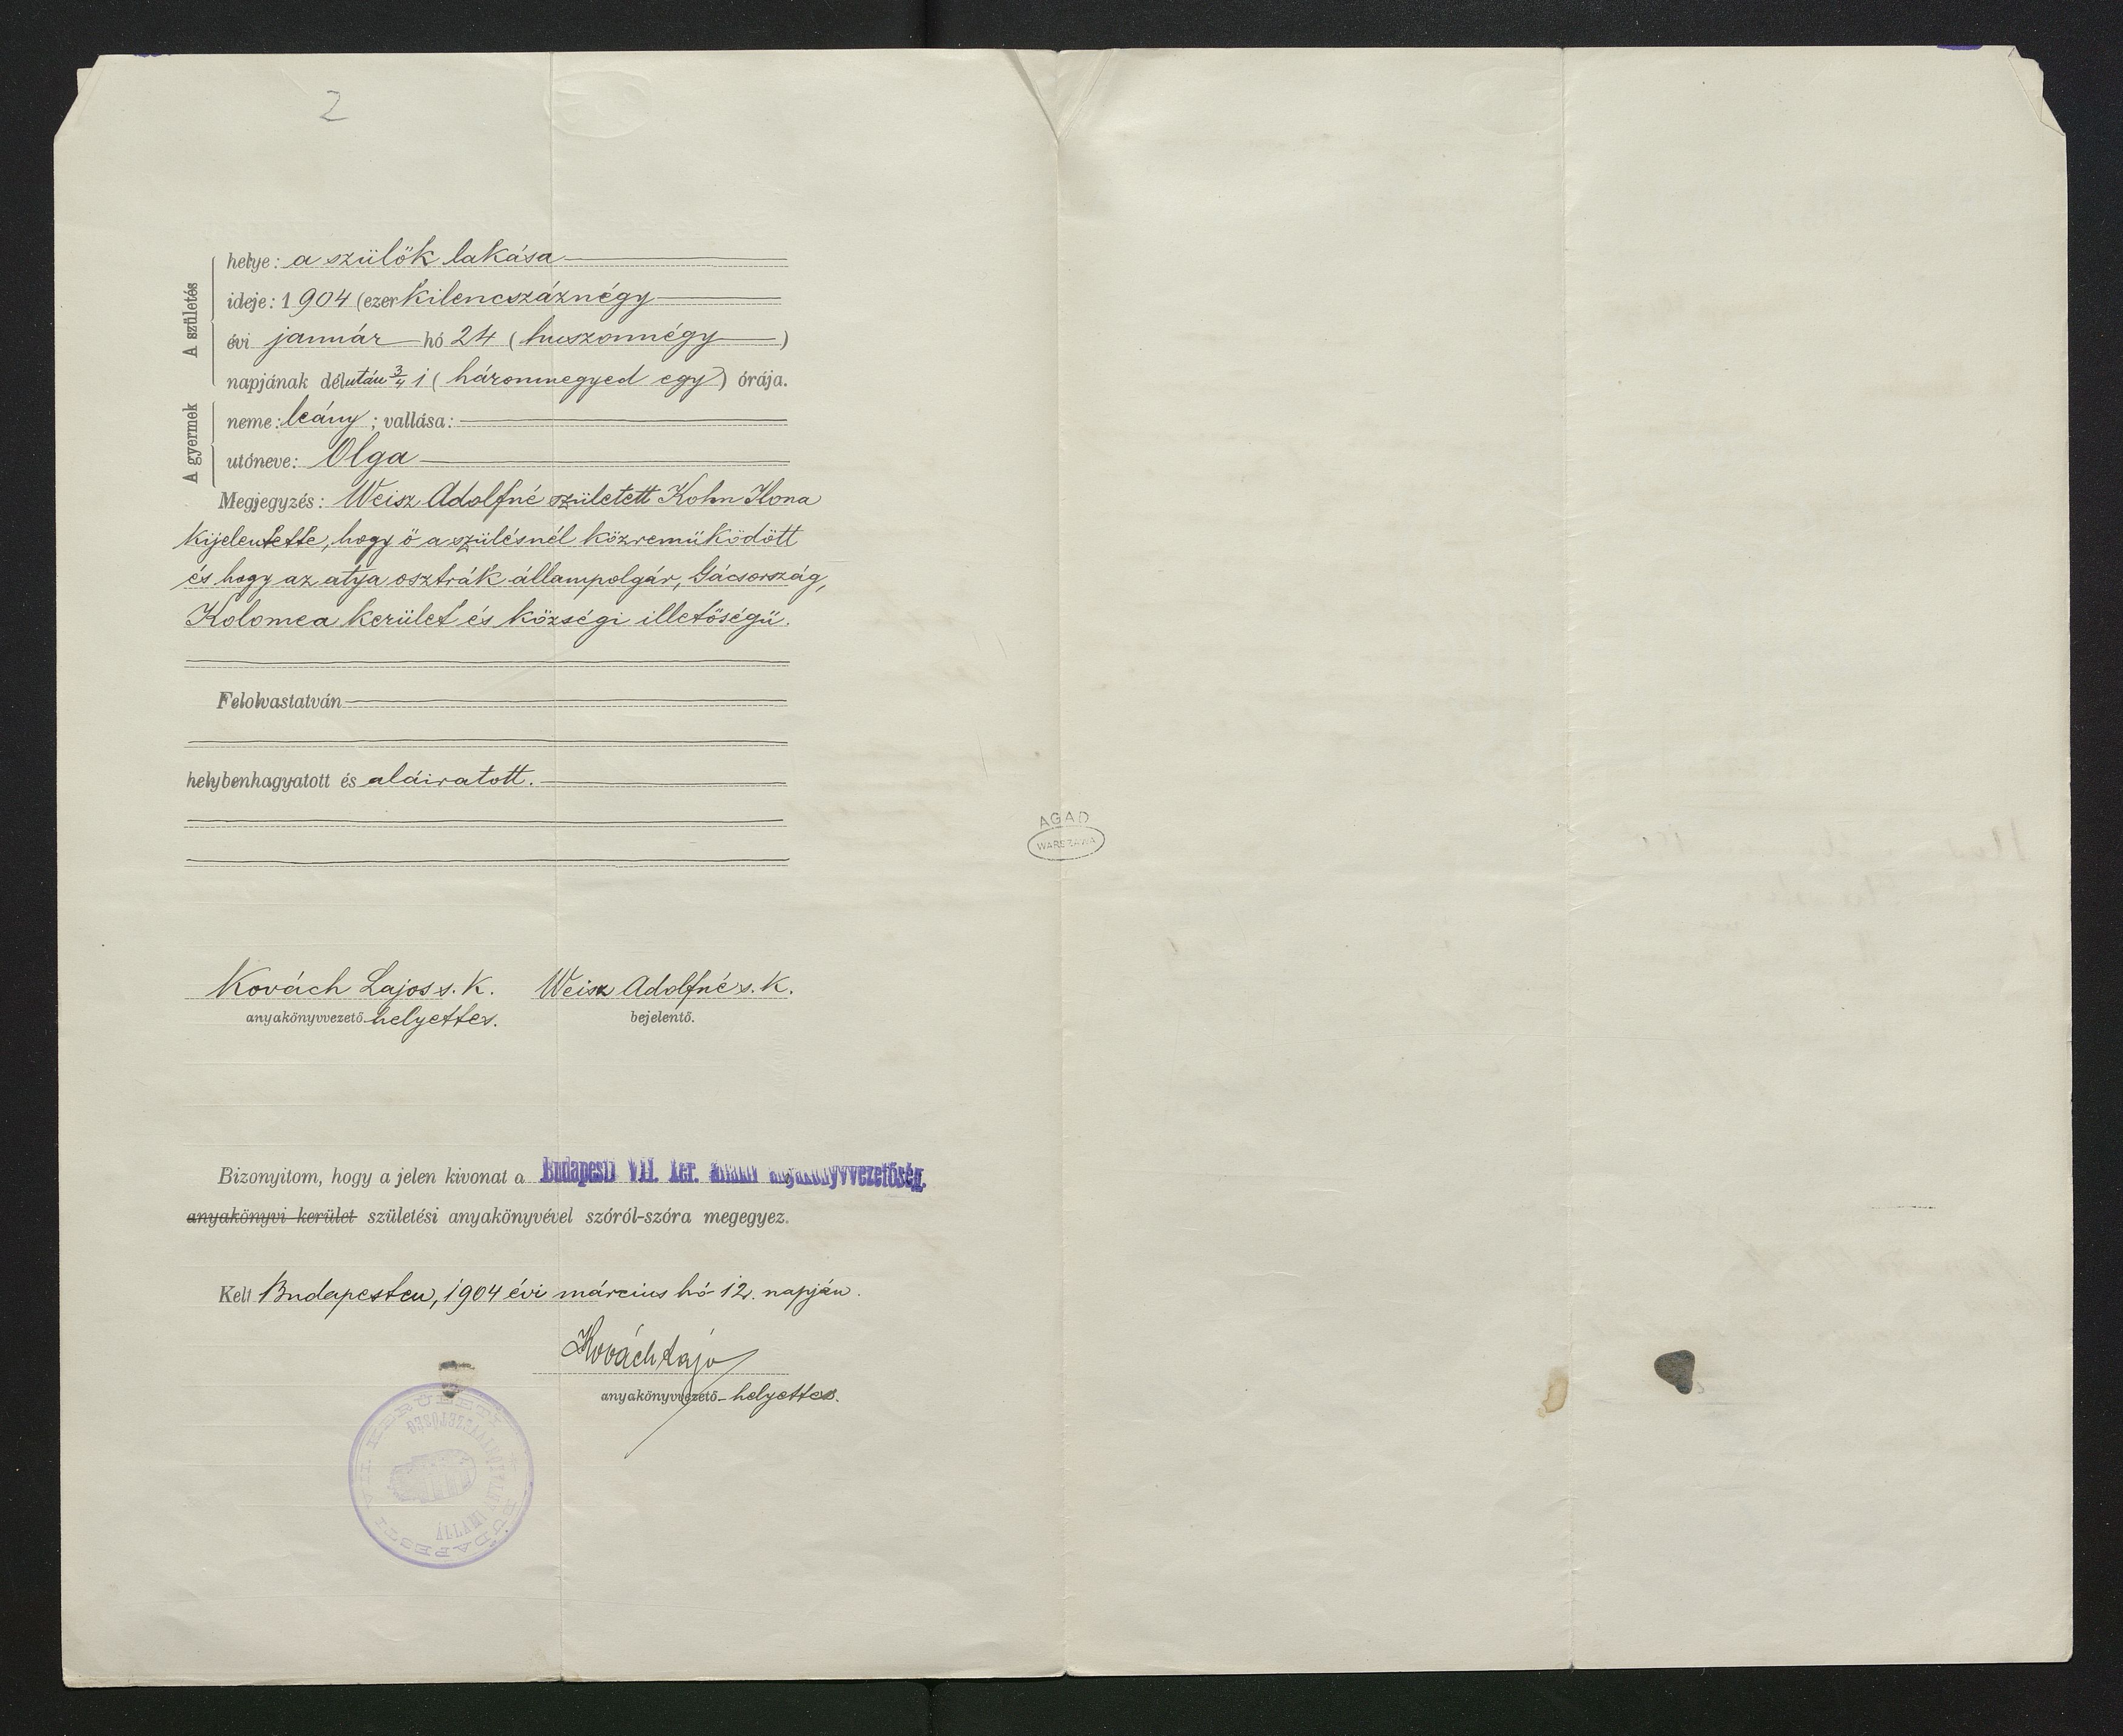 2
A születés
helye: a szülők lakása
ideje: 1904 (ezerkilencszáznégy
évi január hó 24 (huszonnégy)
napjának délután 3/4 1 (háromnegyed egy) órája.
A gyermek
neme: leány; vallása:
utóneve: Olga
Megjegyzés: Weisz Adolfné született Kohn Ilona
kijelentette, hogy ő a szülésnél közremüködött
és hogy az atya osztrák állampolgár, Gácsország,
Kolomea kerület és községi illetőségü.
Felolvastatván
helybenhagyatott és aláiratott.
AGAD
WARSZAWA
Kovách Lajos s. k. Weisz Adolfné s. k.
anyakönyvvezető helyettes. bejelentő.
Bizonyitom, hogy a jelen kivonat a Budapesti VII. ker. állami anyakönyvvezetőség.
anyakönyvi kerület születési anyakönyvével szóról-szóra megegyez.
Kelt Budapesten, 1904 évi március hó 12. napján.
Kovách Lajos
anyakönyvvezető-helyettes.
BUDAPESTI VII. KERÜLETI
ÁLLAMI ANYAKÖNYVVEZETŐSÉG